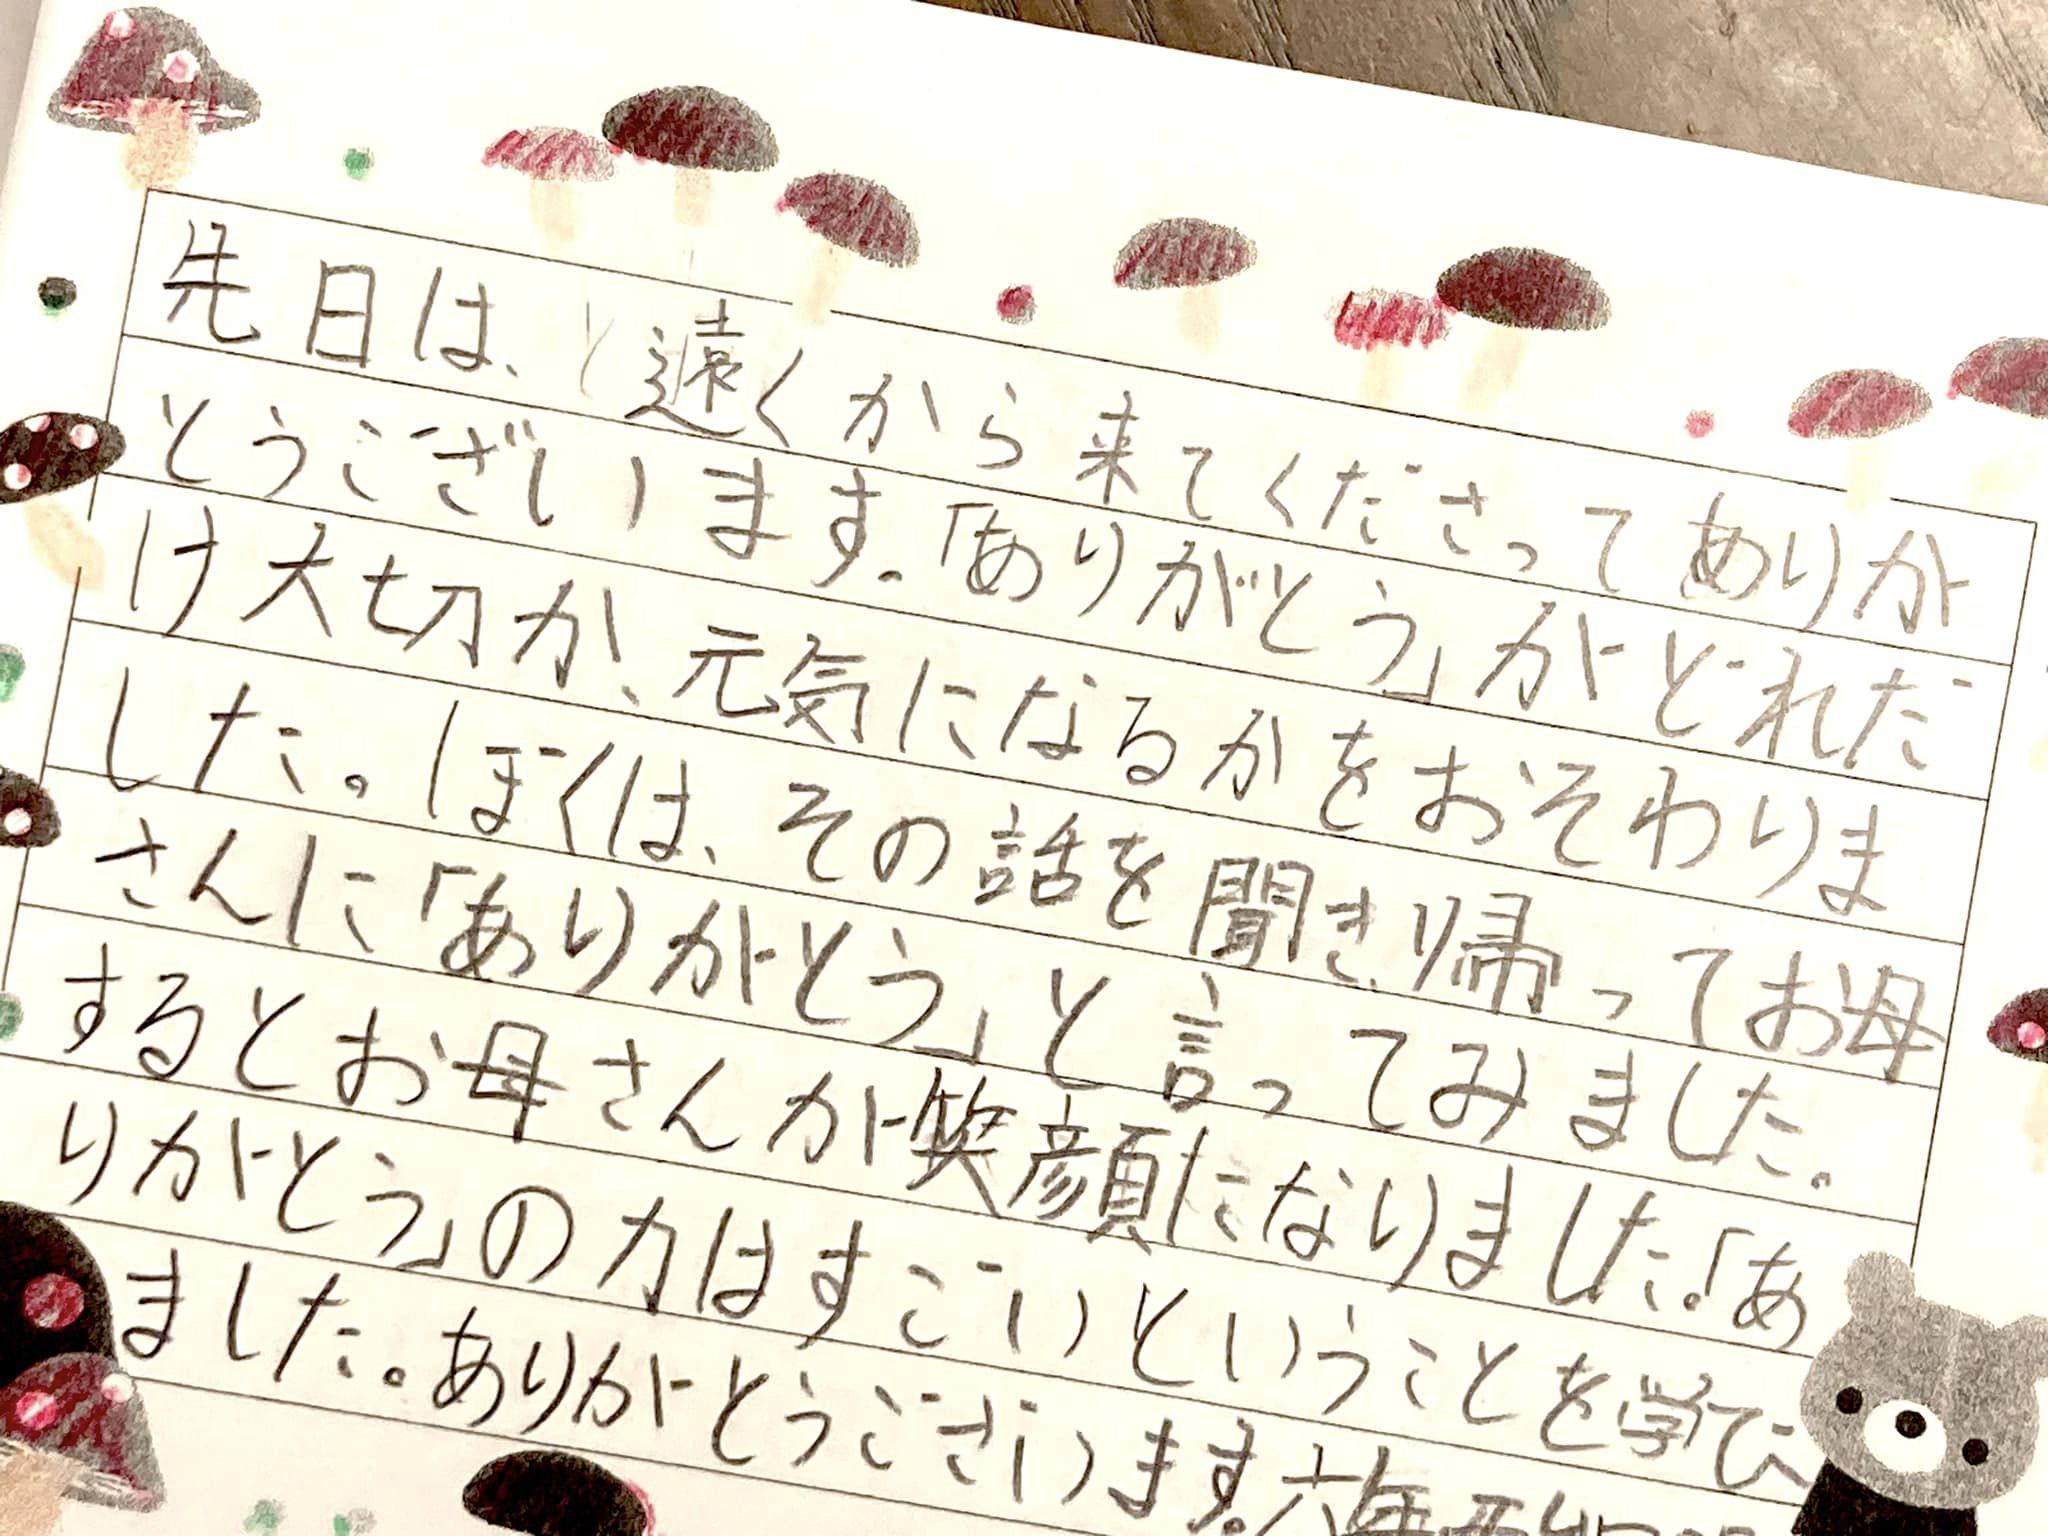 先日は、遠くから来てくださってありが
とうございます。「ありがとう」がどれだ
け大切か、元気になるかをおそわりま
した。ぼくは、その話を聞き、帰ってお母
さんに「ありがとう」と言ってみました。
するとお母さんが笑顔になりました。「あ
りがとう」の力はすごいということを学び
ました。ありがとうございます。